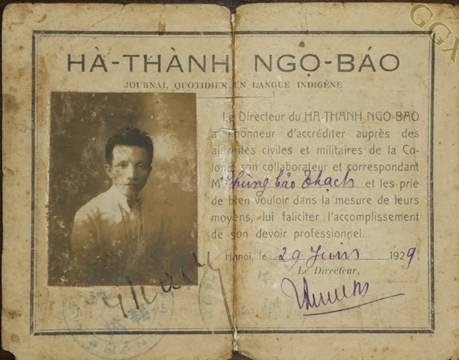 HÀ-THÀNH NGỌ-BÁO
JOURNAL QUOTIDIEN EN LANGUE INDIGÈNE
Le Directeur du HA-THANH NGO-BAO
a l'honneur d'accréditer auprès des
autorités civiles et militaires de la Co-
lonie son collaborateur et correspondant
Mr Phùng bảo Thạch et les prie
de bien vouloir dans la mesure de leurs
moyens, lui faliciter l'accomplissement
de son devoir professionnel.
Hanoi, le 29 Juin 1929
Le Directeur,
GGX